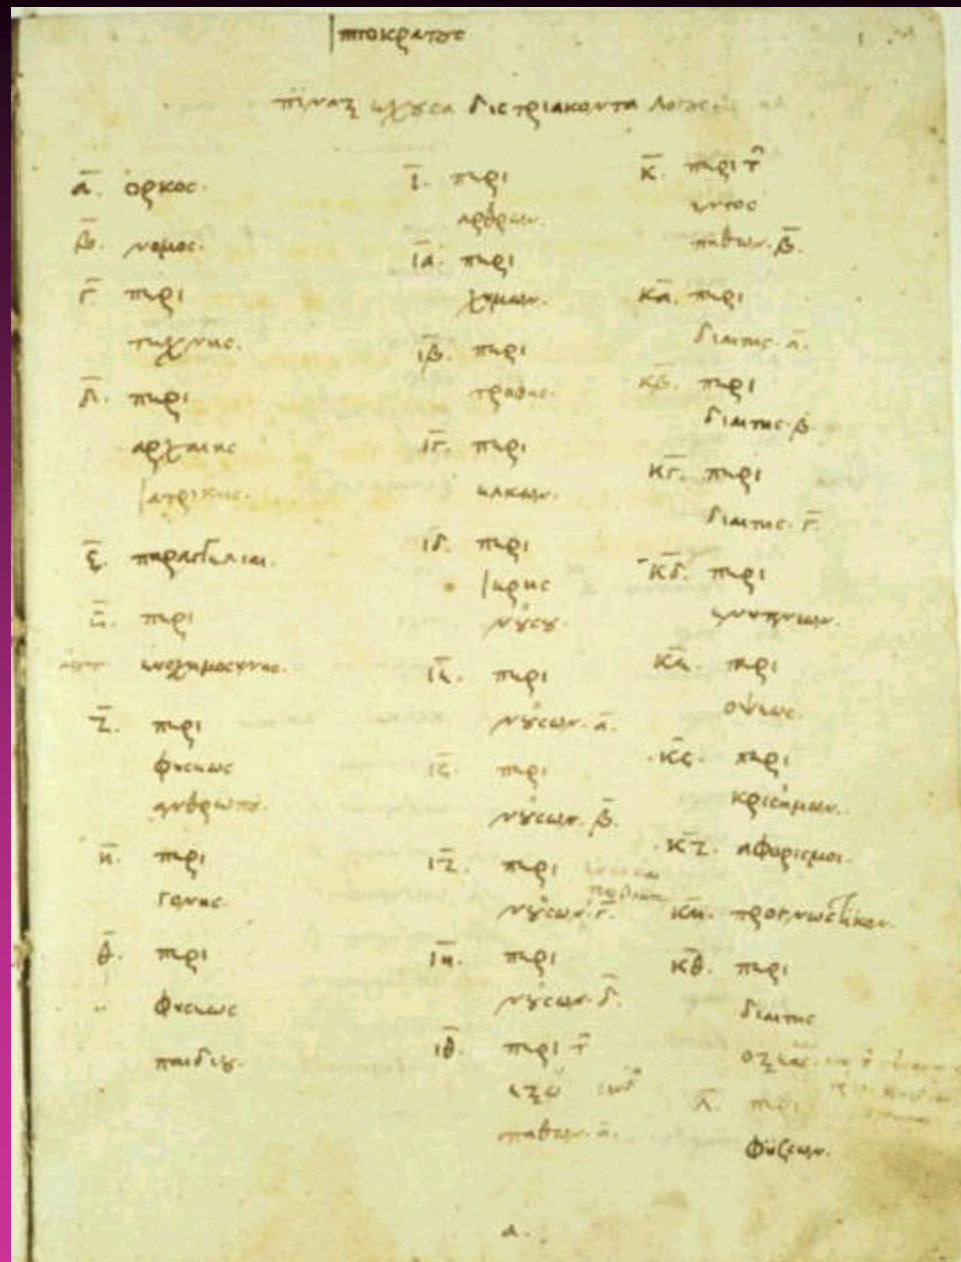 ιπποκρατους
πιναξ εχουσα δις τριακοντα λογους
α. ορκος.
β. νομος.
γ. περι
τεχνης.
δ. περι
αρχαιης
ιατρικης.
ε. παραγγελιαι.
ς. περι
ευσχημοσυνης.
ζ. περι
φυσεως
ανθρωπου.
η. περι
γονης.
θ. περι
φυσεως
παιδιου.
ι. περι
αρθρων.
ια. περι
χυμων.
ιβ. περι
τροφης.
ιγ. περι
ελκων.
ιδ. περι
ιερης
νουσου.
ιε. περι
νουσων. α.
ις. περι
νουσων. β.
ιζ. περι
νουσων. γ.
ιη. περι
νουσων. δ.
ιθ. περι τ
εξω
παθων. α.
κ. περι τ
εντος
παθων. β.
κα. περι
διαιτης. α.
κβ. περι
διαιτης. β.
κγ. περι
διαιτης. γ.
κδ. περι
ενυπνιων.
κε. περι
οψιος.
κς. περι
κρισημων.
κζ. αφορισμοι.
κη. προγνωστικον.
κθ. περι
διαιτης
οξεων.
λ. περι
φυσεων.
α.